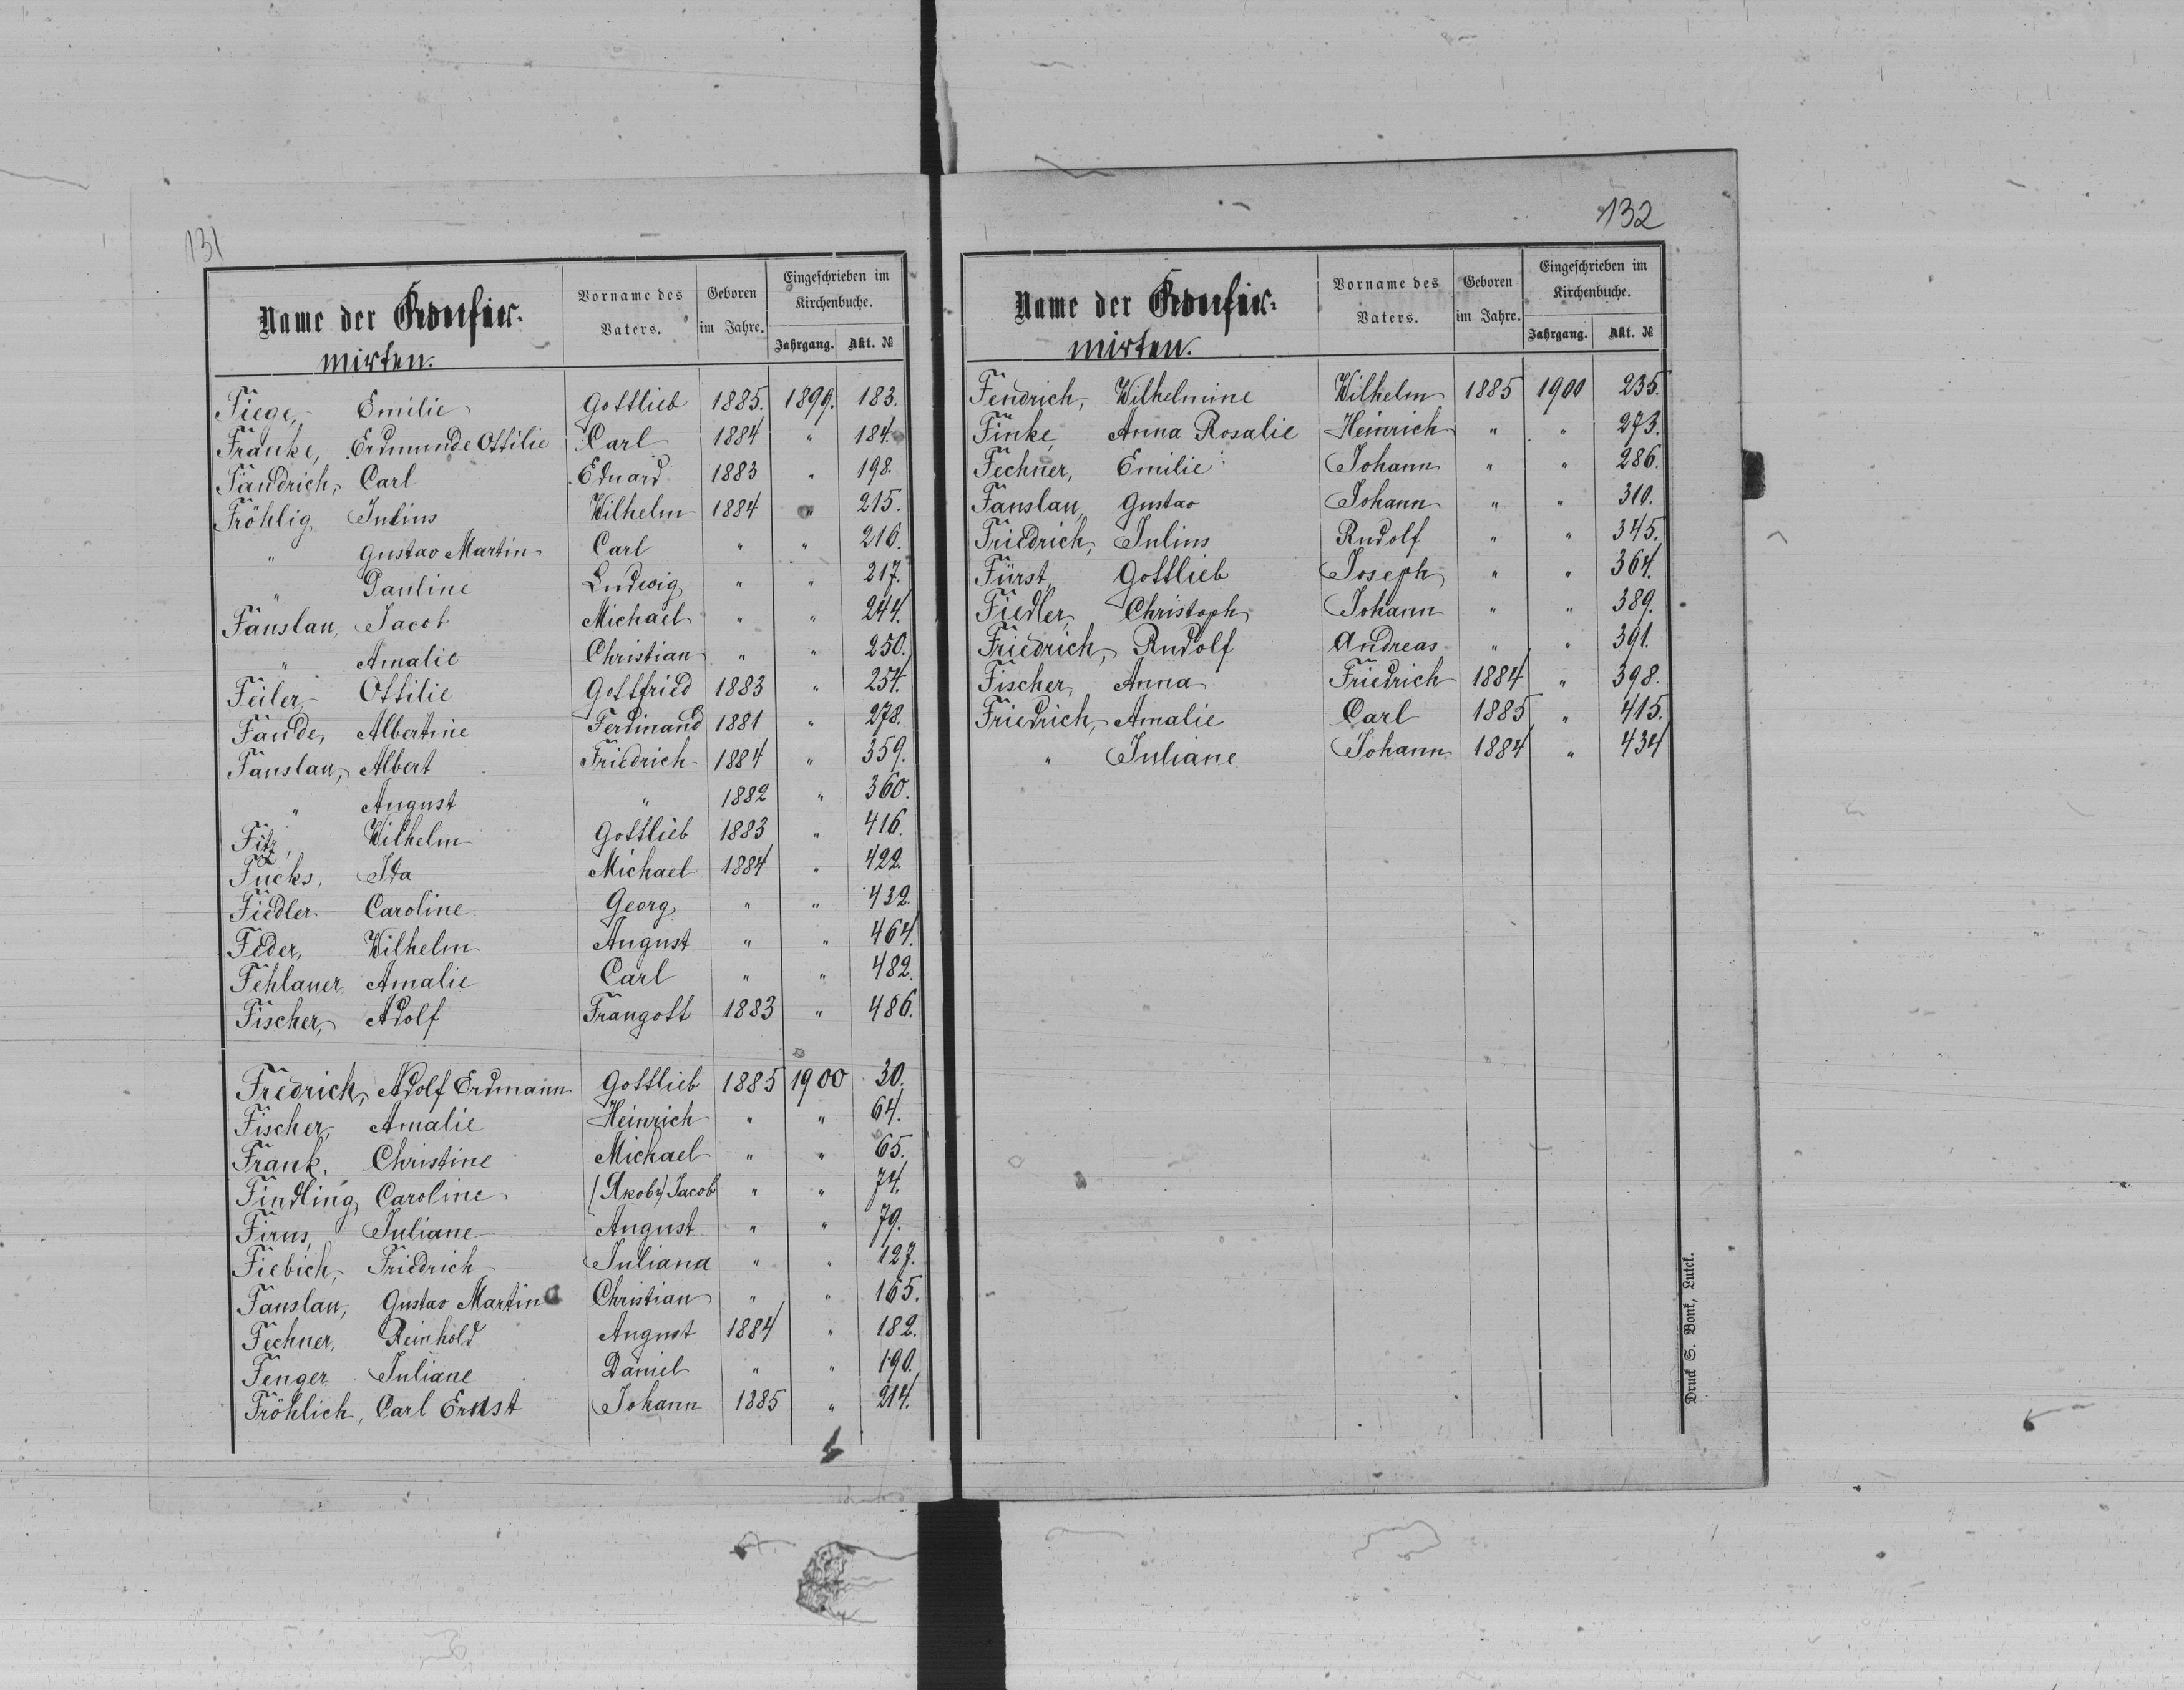 131
Name der Konfir-
mirten.
Vorname des
Vaters.
Geboren
im Jahre.
Eingeschrieben im
Kirchenbuche.
Jahrgang. Akt. №
Fiege, Emilie Gottlieb 1885. 1899. 183.
Franke, Erdmunde Ottilie Carl 1884 " 184.
Fändrich, Carl Eduard 1883 " 198.
Fröhlig, Julius Wilhelm 1884 " 215.
" Gustav Martin Carl " " 216.
" Pauline Ludwig " " 217.
Fanslau, Jacob Michael " " 244.
" Amalie Christian " " 250.
Feiler, Ottilie Gottfried 1883 " 254.
Fande, Albertine Ferdinand 1881 " 278.
Fanslau, Albert Friedrich 1884 " 359.
" August " 1882 " 360.
Fitz, Wilhelm Gottlieb 1883 " 416.
Fucks, Ida Michael 1884 " 422.
Fiedler Caroline Georg " " 432.
Feder, Wilhelm August " " 464.
Fehlauer Amalie Carl " " 482.
Fischer, Adolf Traugott 1883 " 486.
Fredrich, Adolf Erdmann Gottlieb 1885 1900 30.
Fischer, Amalie Heinrich " " 64.
Frank, Christine Michael " " 65.
Findling, Caroline (Якобъ) Jacob " " 74.
Firus, Juliane August " " 79.
Fiebich, Friedrich Juliana " " 127.
Fanslau, Gustav Martin Christian " " 165.
Fechner, Reinhold August 1884 " 182.
Fenger Juliane Daniel " " 190.
Fröhlich, Carl Ernst Johann 1885 " 214.
132
Name der Konfir-
mirten.
Vorname des
Vaters.
Geboren
im Jahre.
Eingeschrieben im
Kirchenbuche.
Jahrgang. Akt. №
Fendrich, Wilhelmine Wilhelm 1885 1900 235.
Finke, Anna Rosalie Heinrich " " 273.
Fechner, Emilie Johann " " 286.
Fanslau, Gustav Johann " " 310.
Friedrich, Julius Rudolf " " 345.
Fürst, Gottlieb Joseph " " 364.
Fiedler, Christoph Johann " " 389.
Friedrich, Rudolf Andreas " " 391.
Fischer, Anna Friedrich 1884 " 398.
Friedrich, Amalie Carl 1885 " 415.
" Juliane Johann 1884 " 434
Druck S. Bonk, Lutck.